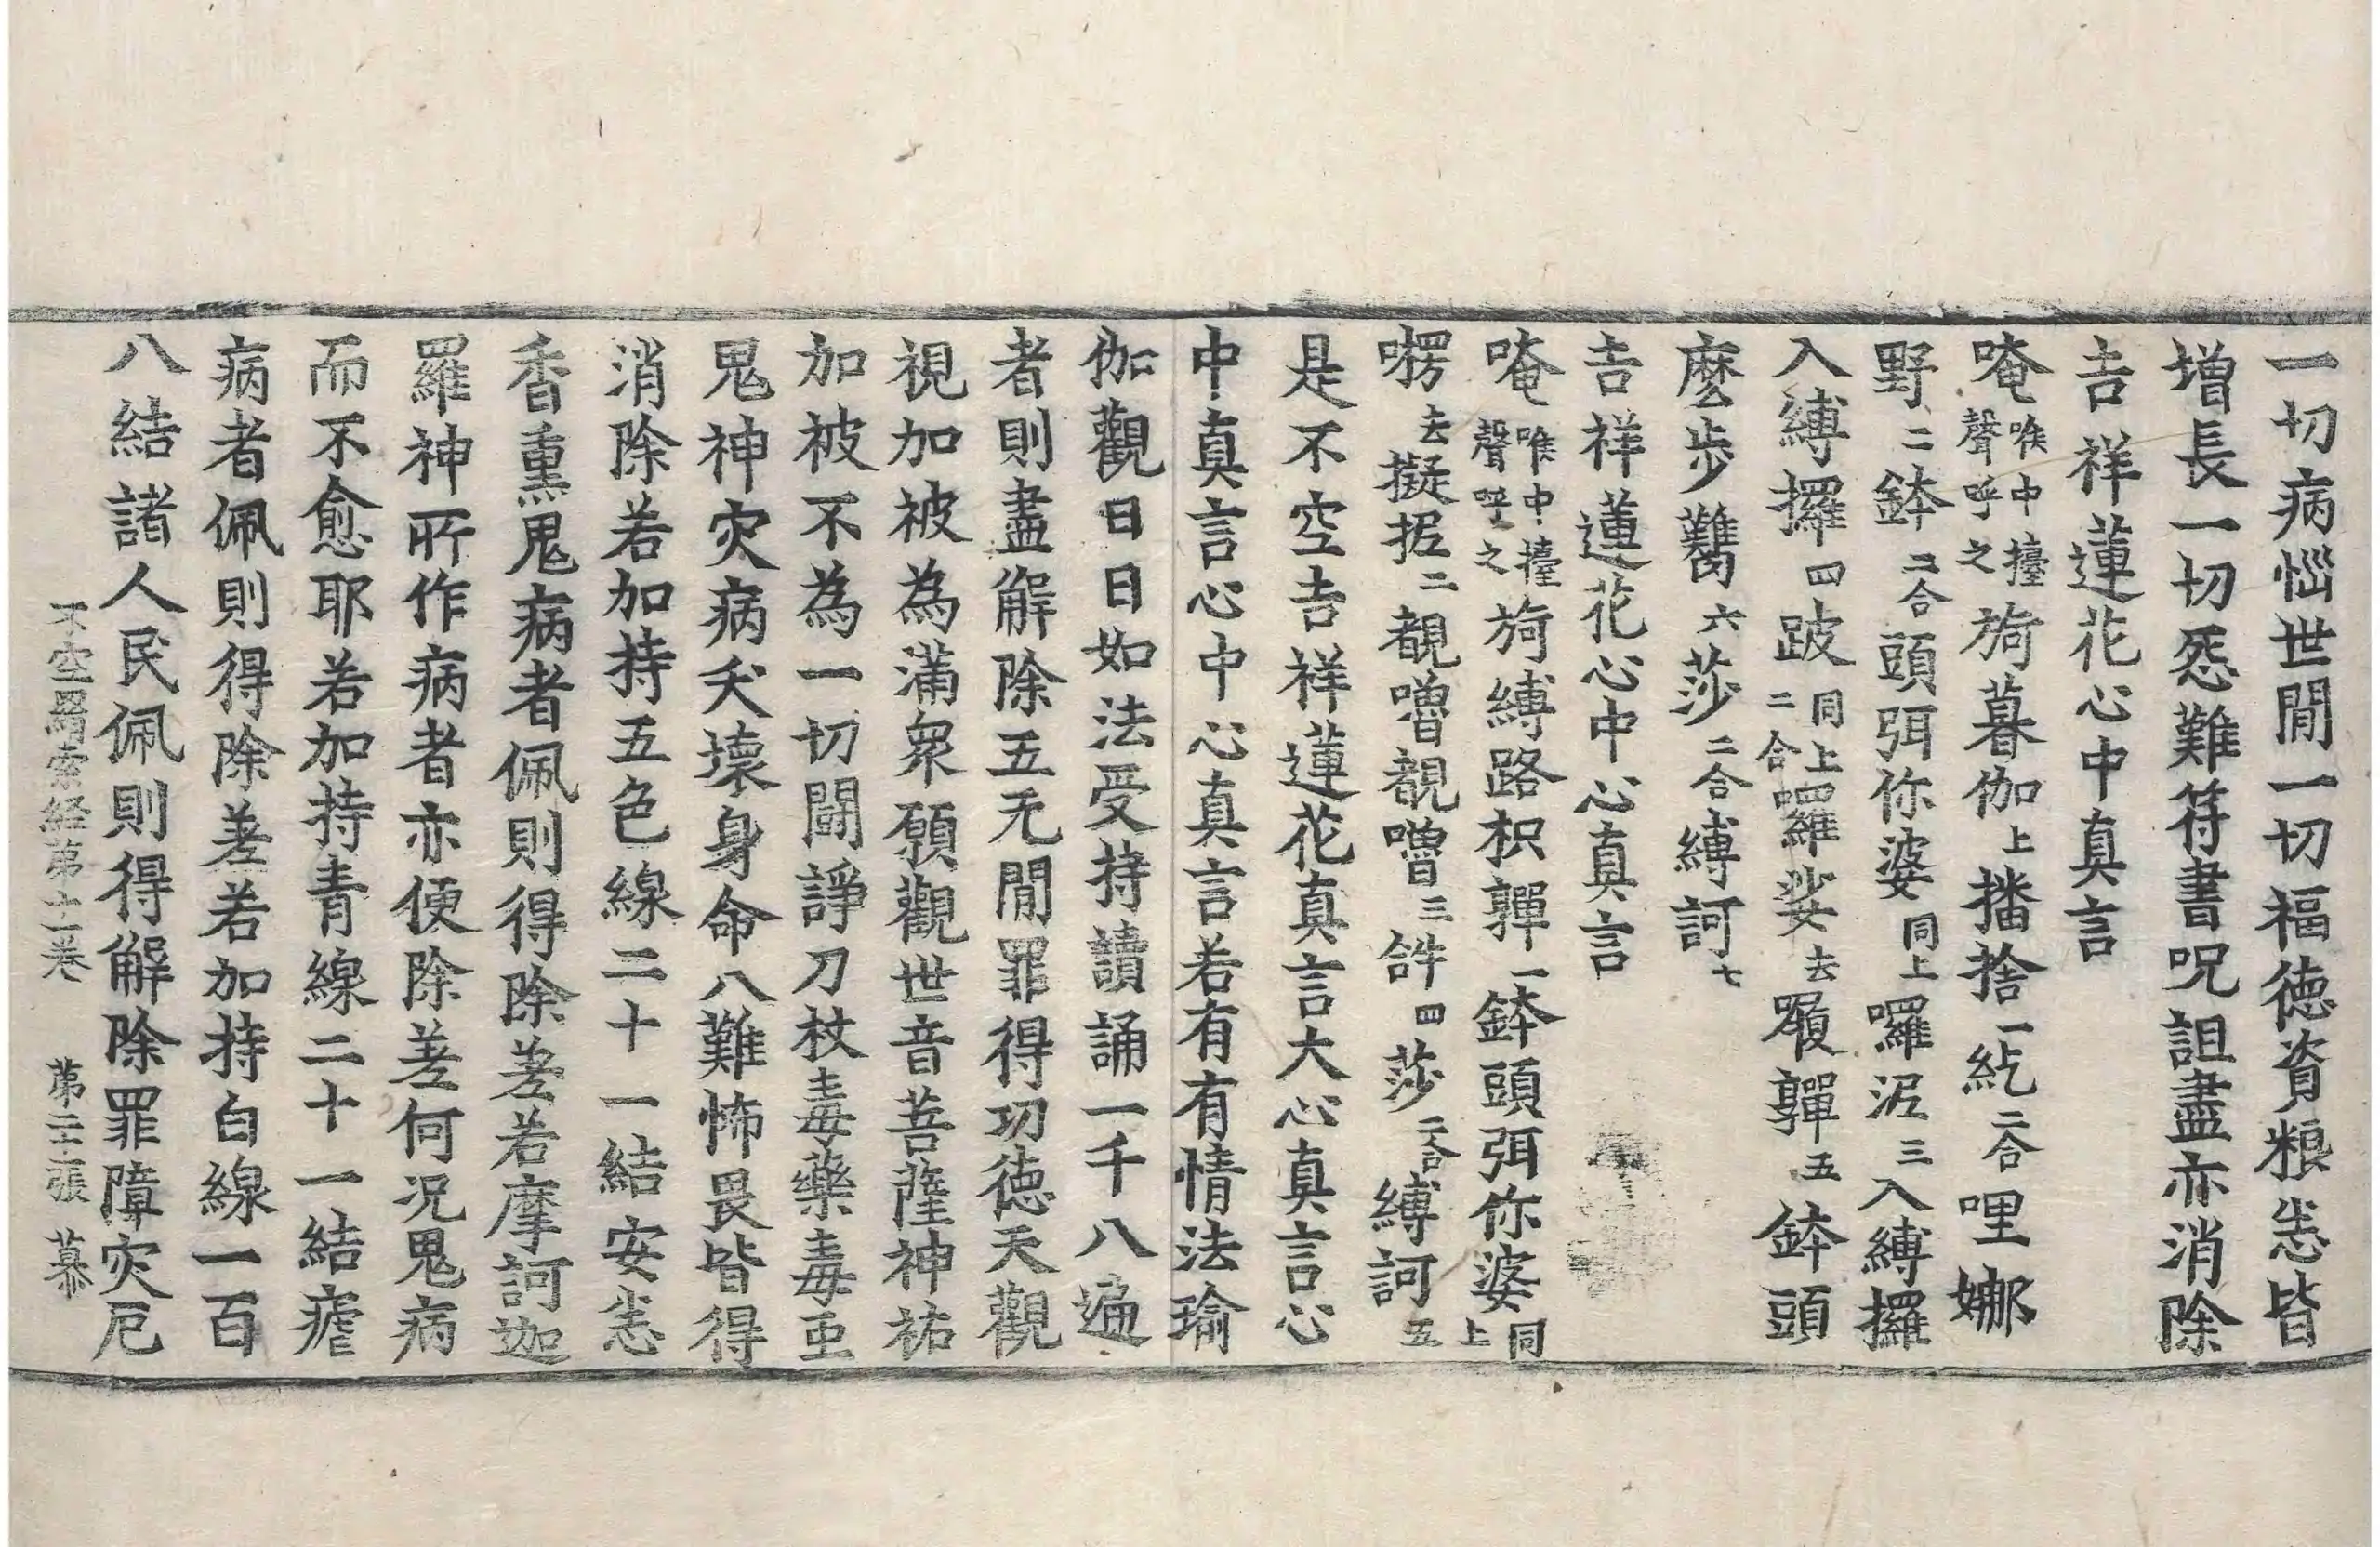 一切病惱世閒一切福德資粮恙皆
增長一切怨難符書呪詛盡亦消除
吉祥蓮花心中真言
唵喉中擡聲呼之旖暮伽上播捨一紇二合哩娜
野二鉢二合頭弭你婆同上囉泥三入縛攞
入縛攞四跛同上二合囉娑去履嚲五鉢頭
麼步𤚥六莎二合縛訶七
吉祥蓮花心中心真言
唵喉中擡聲呼之旖縛路枳嚲一鉢頭弭你婆同上
㘄去擬抳二覩嚕覩嚕三𤙖四莎二合縛訶五
是不空吉祥蓮花真言大心真言心
中真言心中心真言若有有情法瑜
伽觀日日如法受持讀誦一千八遍
者則盡解除五无閒罪得功德天觀
視加被為滿衆願觀世音菩薩神祐
加被不為一切鬪諍刀杖毒藥毒虫
鬼神灾病夭壞身命八難怖畏皆得
消除若加持五色線二十一結安恙
香熏鬼病者佩則得除差若摩訶迦
羅神所作病者亦便除差何况鬼病
而不愈耶若加持青線二十一結瘧
病者佩則得除差若加持白線一百
八結諸人民佩則得解除罪障灾厄
不空羂索経第十一卷　第二十二張　慕